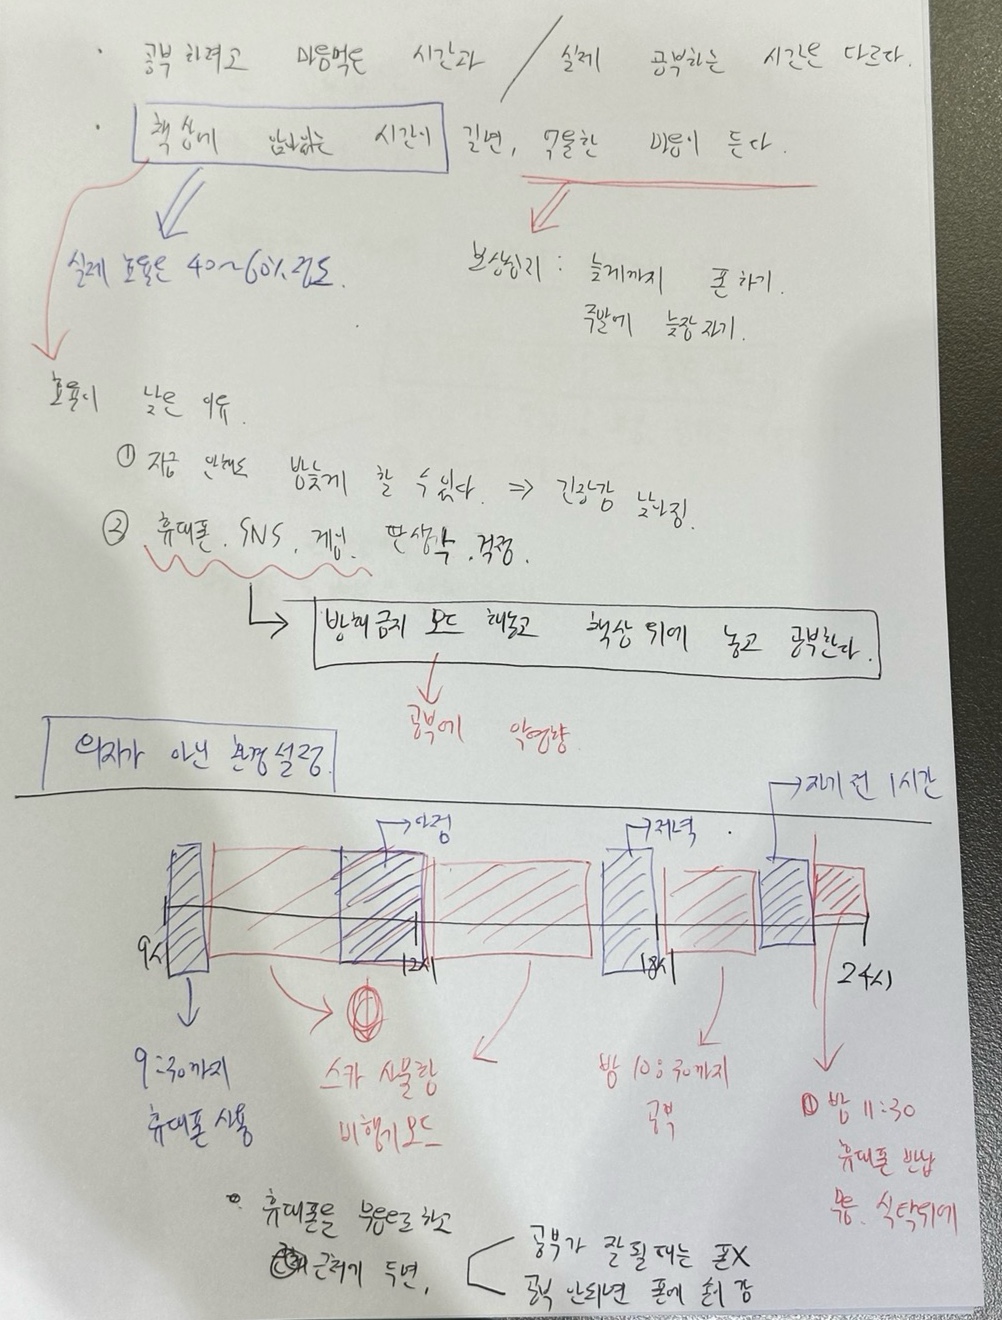 · 공부하려고 마음먹은 시간과 / 실제 공부하는 시간은 다르다.
· 책상에 앉아있는 시간이 길면, 억울한 마음이 든다.
실제 효율은 40~60% 정도.
보상심리 : 늦게까지 폰 하기.
주말에 늦잠 자기.
효율이 낮은 이유.
① 지금 안해도 밤늦게 할 수 있다. ⇒ 긴장감 낮아짐.
② 휴대폰. SNS, 게임. 딴생각. 걱정.
방해금지 모드 해놓고 책상 위에 놓고 공부한다.
공부에 악영향
의지가 아닌 환경설정.
자기 전 1시간
점 저녁
9시 12시 18시 24시
9:30까지
휴대폰 사용
스카 사물함
비행기모드
밤 10:30까지
공부
밤 11:30
휴대폰 반납
식탁위에
휴대폰을 무음으로 하고
근처에 두면,
공부가 잘 될 때는 폰X
공부 안되면 폰에 손이 감